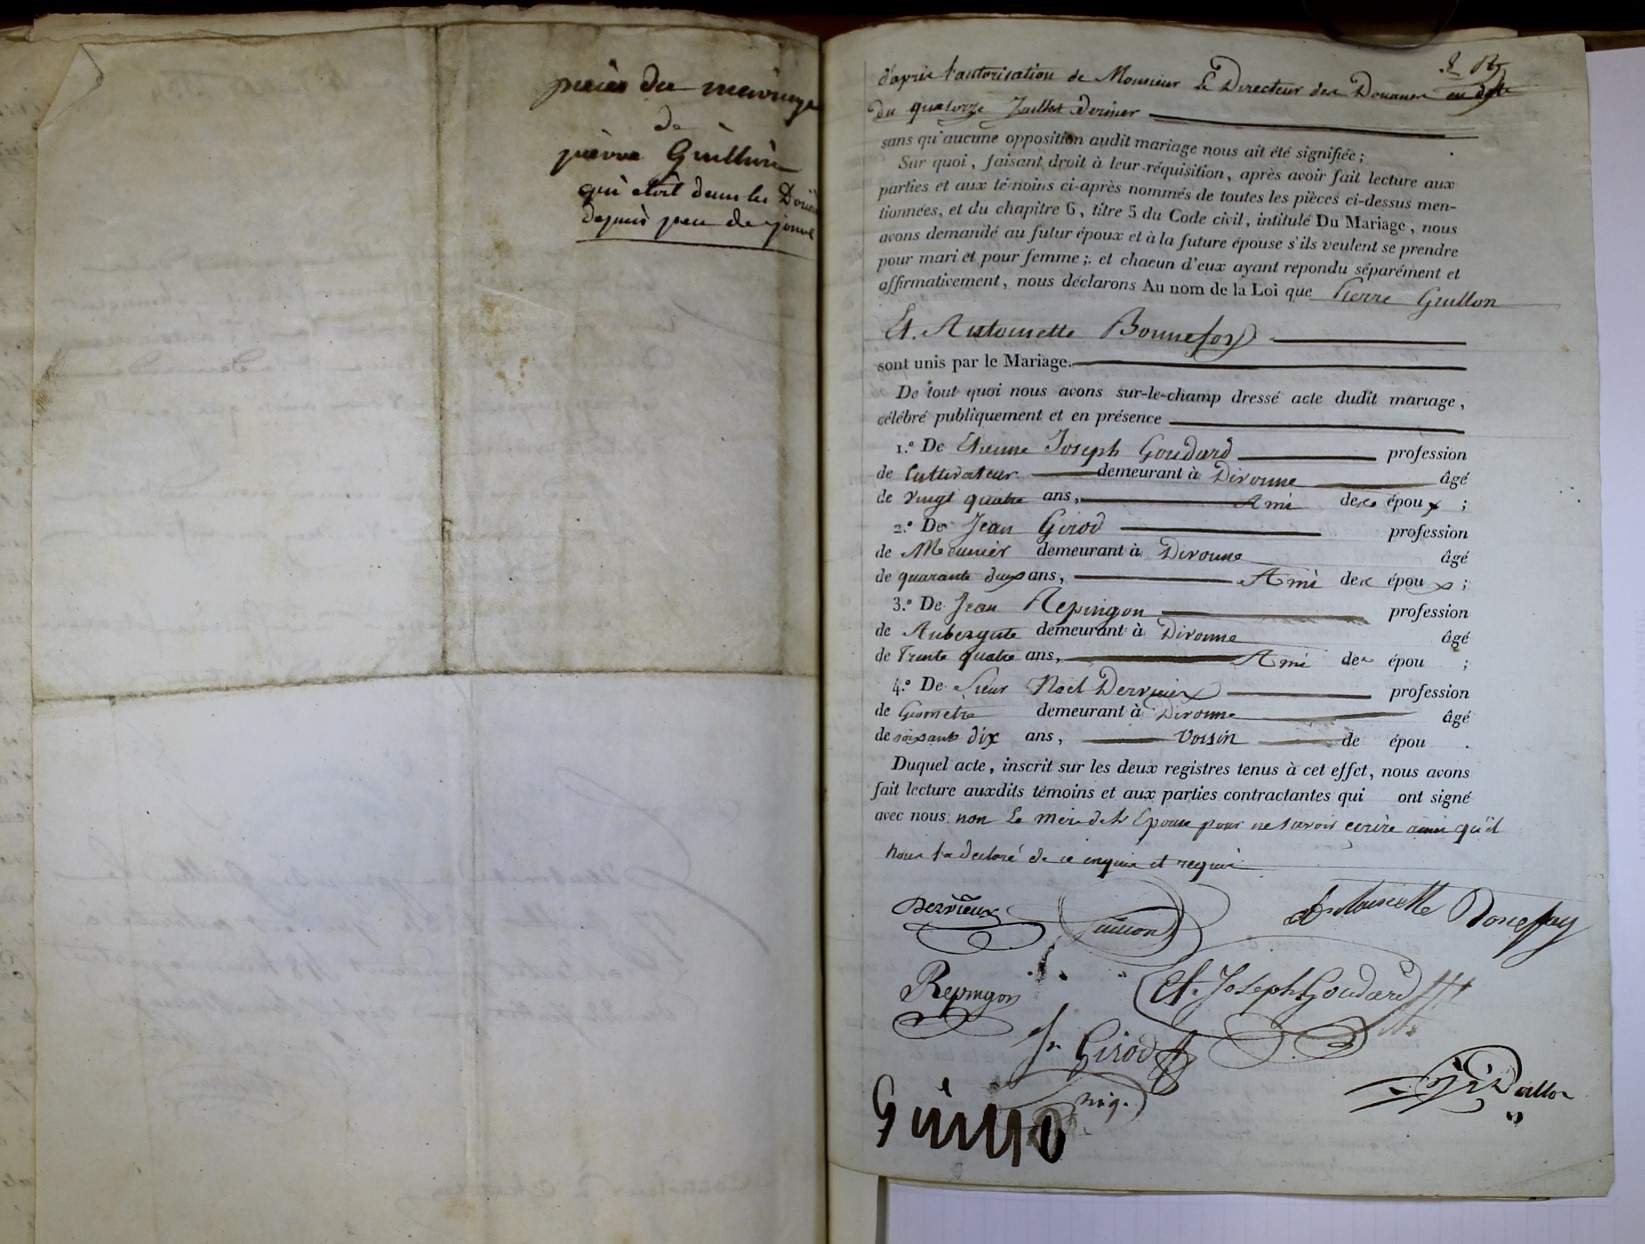 pièces du mariage
de
pierre Guillion
qui etoit dans les Douà
depuis peu de jour
d'après l'autorisation de Monsieur Le Directeur des Douanes en date
du quatorze Juillet dernier
sans qu'aucune opposition audit mariage nous ait été signifiée ;
Sur quoi, faisant droit à leur réquisition, après avoir fait lecture aux
parties et aux témoins ci-après nommés de toutes les pièces ci-dessus men-
tionnées, et du chapitre 6, titre 5 du Code civil, intitulé Du Mariage, nous
avons demandé au futur époux et à la future épouse s'ils veulent se prendre
pour mari et pour femme ; et chacun d'eux ayant repondu séparément et
affirmativement, nous déclarons Au nom de la Loi que Pierre Guillon
Et. Antoinette Bonnefoy
sont unis par le Mariage.
De tout quoi nous avons sur-le-champ dressé acte dudit mariage,
célébré publiquement et en présence
1.º De Etienne Joseph Goudard profession
de Cultivateur demeurant à Divonne âgé
de vingt quatre ans, Ami des époux ;
2.º De Jean Girod profession
de Meunier demeurant à Divonne âgé
de quarante deux ans, Ami des époux ;
3.º De Jean Repingon profession
de Aubergiste demeurant à Divonne âgé
de Trente quatre ans, Ami des épou ;
4.º De Sieur Noel Dervieux profession
de Géometre demeurant à Divonne âgé
de soixante dix ans, Voisin de épou .
Duquel acte, inscrit sur les deux registres tenus à cet effet, nous avons
fait lecture auxdits témoins et aux parties contractantes qui ont signé
avec nous non La mere de la Epouse pour ne savoir ecrire ainsi qu'il
nous l'a declaré de ce enquise et requise
Dervieux Guillon Antoinette Bonefoy
Repingon Et. Joseph Goudard
Jn Girod